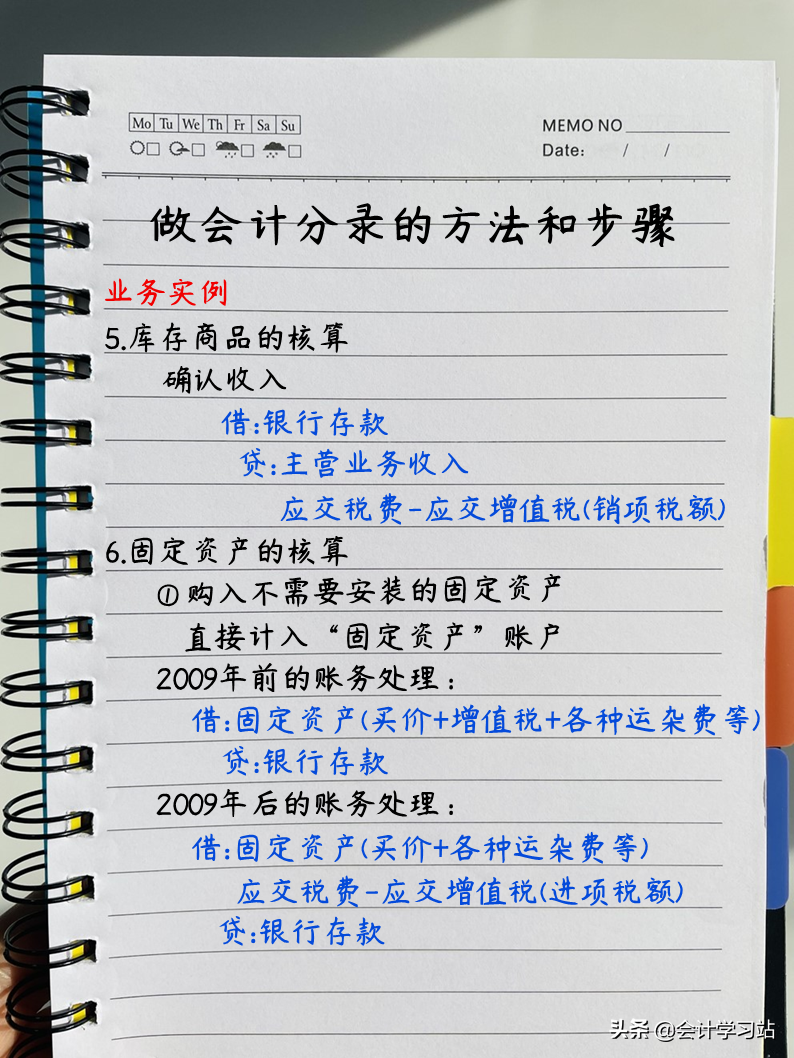 Mo Tu We Th Fr Sa Su
MEMO NO
Date: / /
做会计分录的方法和步骤
业务实例
5.库存商品的核算
确认收入
借:银行存款
贷:主营业务收入
应交税费-应交增值税(销项税额)
6.固定资产的核算
①购入不需要安装的固定资产
直接计入“固定资产”账户
2009年前的账务处理:
借:固定资产(买价+增值税+各种运杂费等)
贷:银行存款
2009年后的账务处理:
借:固定资产(买价+各种运杂费等)
应交税费-应交增值税(进项税额)
贷:银行存款
头条 @会计学习站